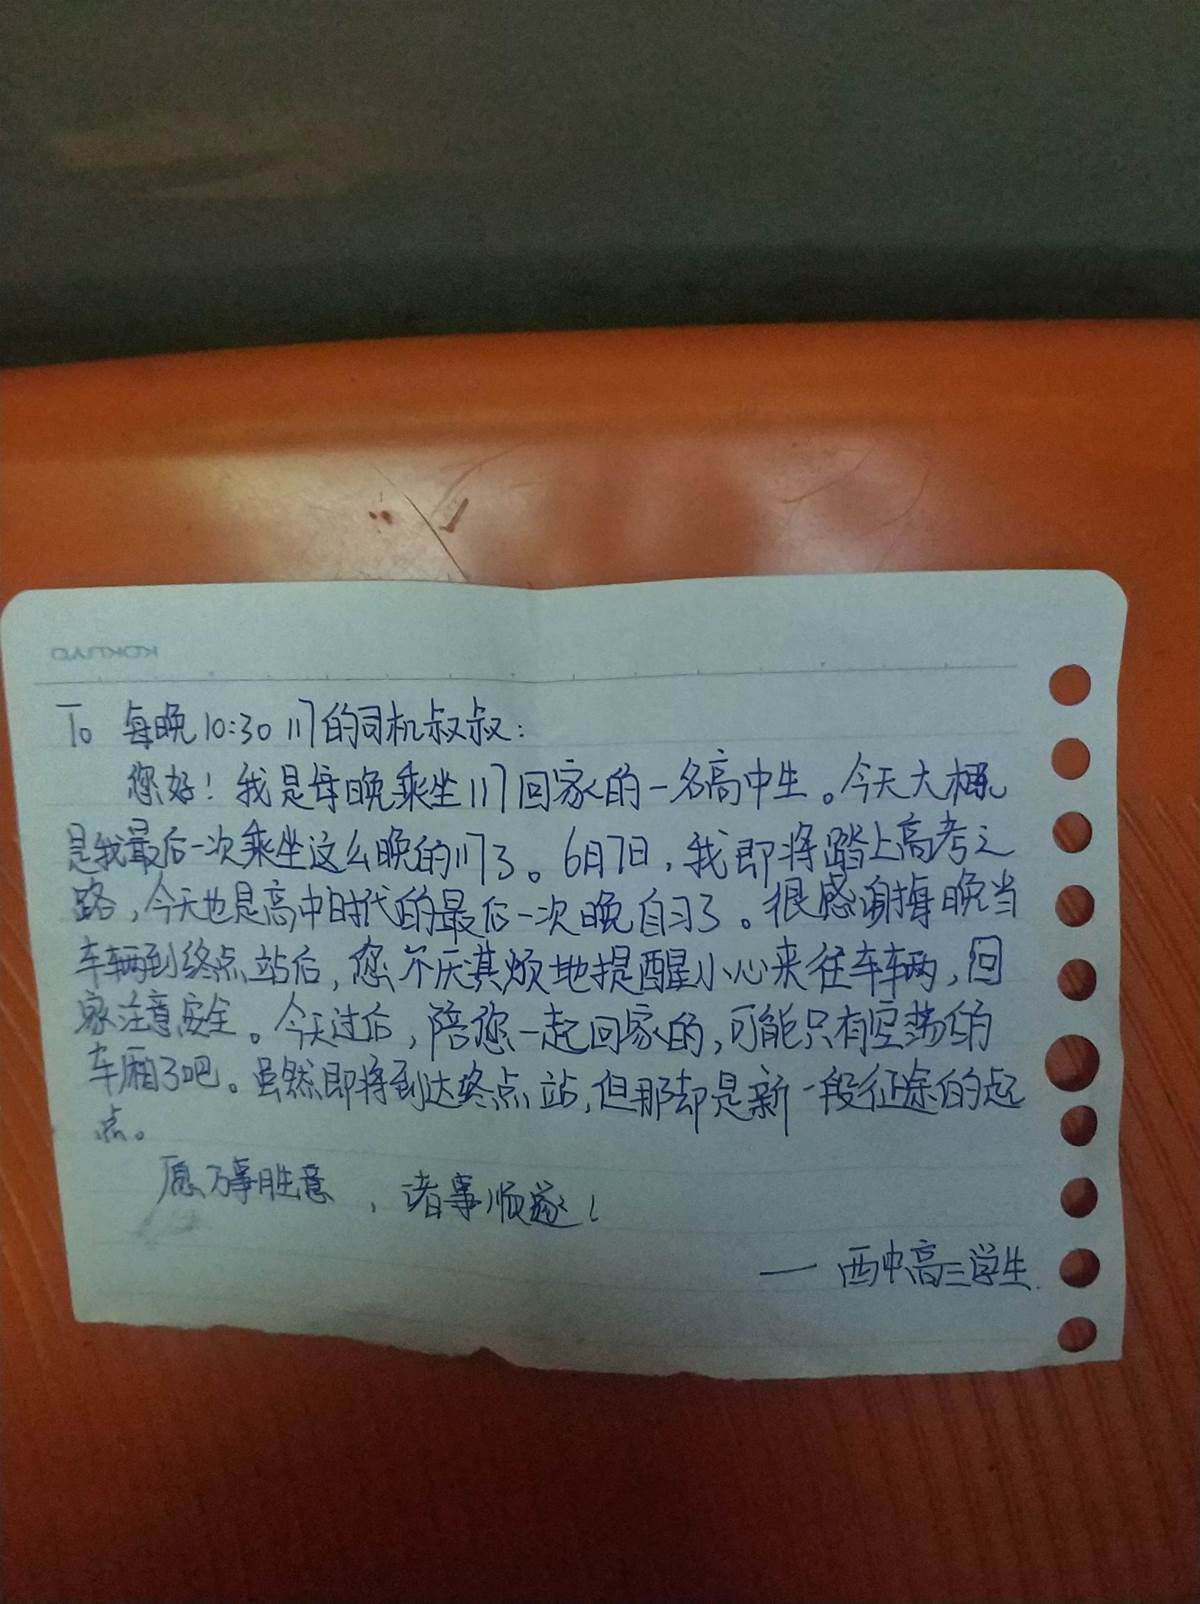 KOKUYO
To 每晚10:30 117的司机叔叔：
您好！我是每晚乘坐117回家的一名高中生。今天大概
是我最后一次乘坐这么晚的117了。6月7日，我即将踏上高考之
路，今天也是高中时代的最后一次晚自习了。很感谢每晚当
车辆到终点站后，您不厌其烦地提醒小心来往车辆，回
家注意安全。今天过后，陪您一起回家的，可能只有空荡的
车厢了吧。虽然即将到达终点站，但那却是新一段征途的起
点。
愿万事胜意，诸事顺遂！
— 西中高三学生.